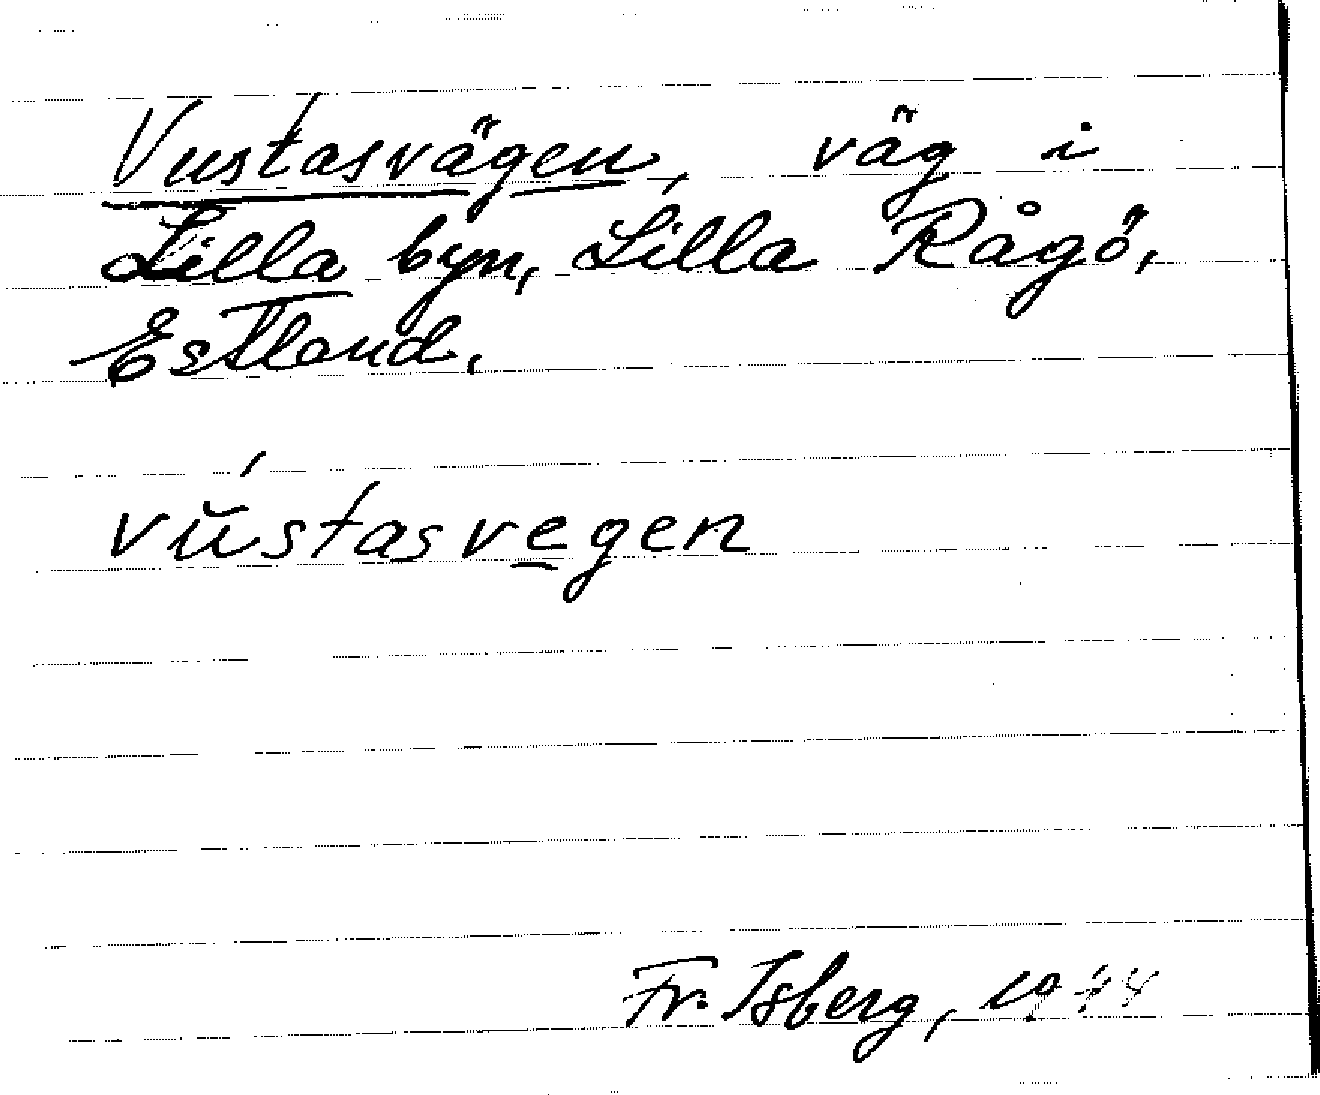 Vustasvägen, väg i
Lilla byn, Lilla Rågö,
Estland.
vŭ́stasve̲gen
Fr. Isberg, 1974